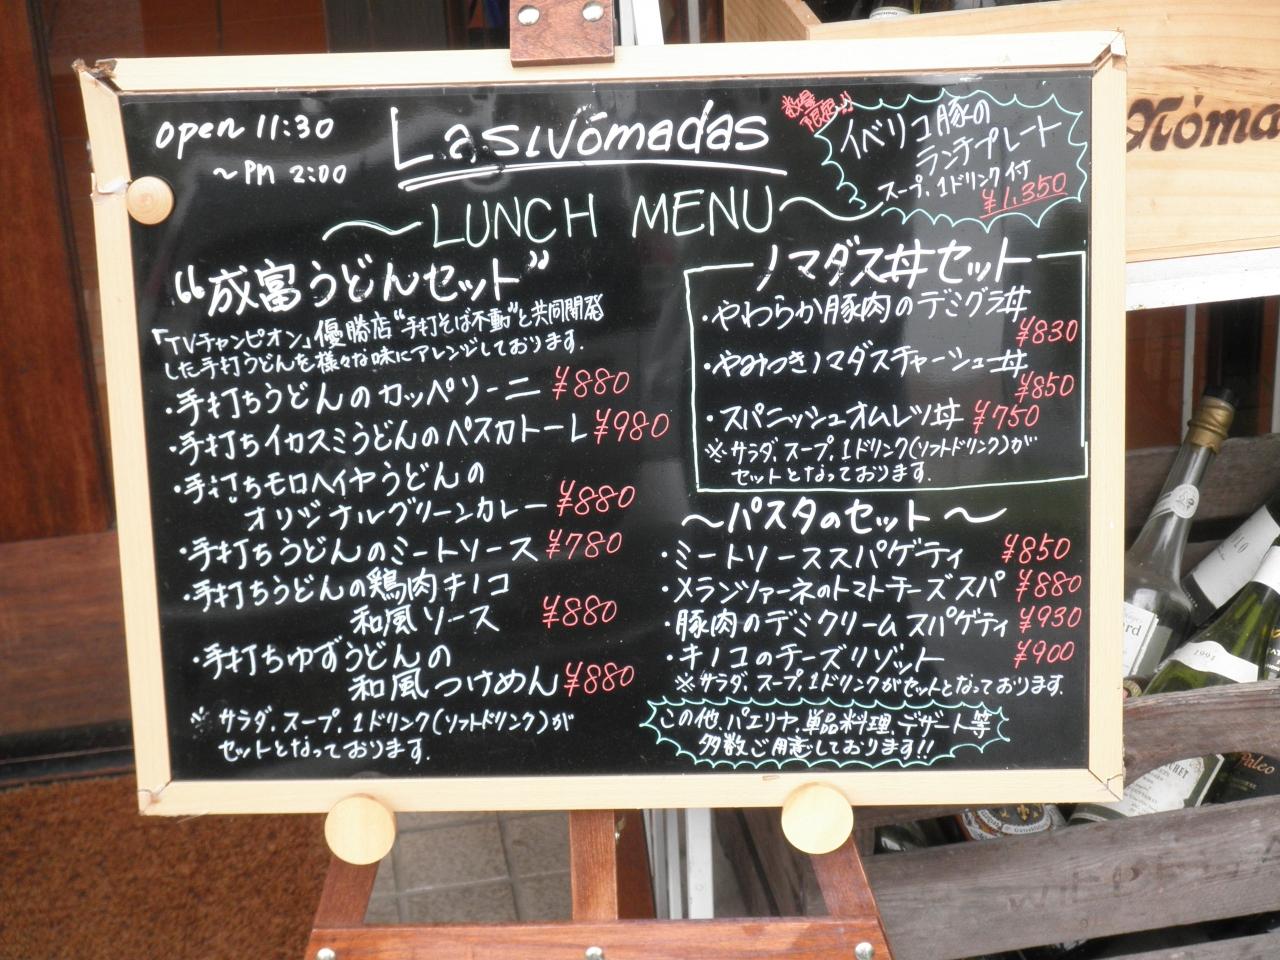 open 11:30
～PM 2:00
Lasnómadas
数量
限定!!
イベリコ豚の
ランチプレート
スープ、1ドリンク付
¥1,350
～LUNCH MENU～
"成富うどんセット"
「TVチャンピオン」優勝店"手打そば不動"と共同開発
した手打うどんを様々な味にアレンジしております。
・手打ちうどんのカッペリーニ ¥880
・手打ちイカスミうどんのペスカトーレ ¥980
・手打ちモロヘイヤうどんの
オリジナルグリーンカレー ¥880
・手打ちうどんのミートソース ¥780
・手打ちうどんの鶏肉キノコ
和風ソース ¥880
・手打ちゆずうどんの
和風つけめん ¥880
※サラダ、スープ、1ドリンク(ソフトドリンク)が
セットとなっております。
ノマダス丼セット
・やわらか豚肉のデミグラ丼
¥830
・やみつきノマダスチャーシュー丼
¥850
・スパニッシュオムレツ丼 ¥750
※サラダ、スープ、1ドリンク(ソフトドリンク)が
セットとなっております。
～パスタのセット～
・ミートソーススパゲティ ¥850
・メランツァーネのトマトチーズスパ ¥880
・豚肉のデミクリームスパゲティ ¥930
・キノコのチーズリゾット ¥900
※サラダ、スープ、1ドリンクがセットとなっております。
この他、パエリヤ、単品料理、デザート等
多数ご用意しております!!
Nóma
1991
Paleo